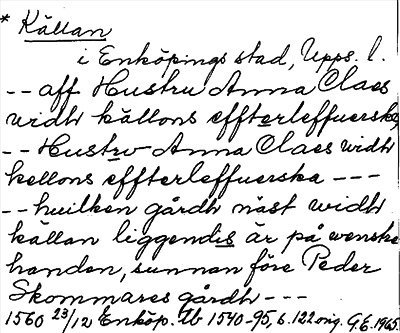 * Källan
i Enköpings stad, Upps. l.
-- aff Hustru Anna Claes
widh källons effterleffuerske,
-- Hustrv Anna Claes widh
kellons effterleffuerska ---
-- huilken gårdh näst widh
källan liggendis är på wenske
handen, sunnan före Peder
Skommares gårdh ---
1560 23/12 Enköp. Tb 1540-95, s. 122 orig. G.E. 1965.